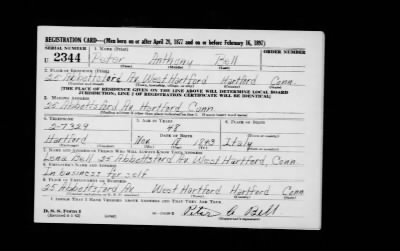 REGISTRATION CARD—(Men born on or after April 28, 1877 and on or before February 16, 1897)
SERIAL NUMBER 1. NAME (Print) ORDER NUMBER
U 2344 Peter Anthony Bell
(First) (Middle) (Last)
2. PLACE OF RESIDENCE (Print)
25 Abbottsford Av. West Hartford Hartford Conn.
(Number and street) (Town, township, village, or city) (County) (State)
[THE PLACE OF RESIDENCE GIVEN ON THE LINE ABOVE WILL DETERMINE LOCAL BOARD
JURISDICTION; LINE 2 OF REGISTRATION CERTIFICATE WILL BE IDENTICAL]
3. MAILING ADDRESS
25 Abbottsford Av. Hartford, Conn
4. TELEPHONE 5. AGE IN YEARS 6. PLACE OF BIRTH
5-7329 48
DATE OF BIRTH
Hartford Nov 18 1893 Italy
7. NAME AND ADDRESS OF PERSON WHO WILL ALWAYS KNOW YOUR ADDRESS
Lena Bell 25 Abbottsford Av. West Hartford, Conn
8. EMPLOYER'S NAME AND ADDRESS
In business for self
9. PLACE OF EMPLOYMENT OR BUSINESS
25 Abbottsford Av West Hartford Hartford Conn
I AFFIRM THAT I HAVE VERIFIED ABOVE ANSWERS AND THAT THEY ARE TRUE.
D. S. S. Form 1
Peter A Bell